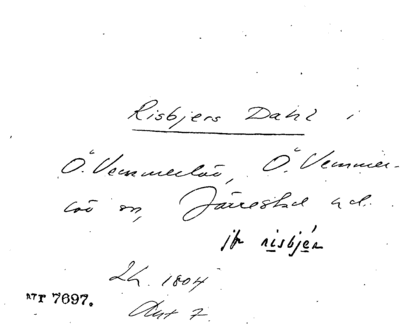 Risbjers Dahl i
Ö. Vemmerlöv, Ö. Vemmer-
löv sn, Järrestad hd.
jfr risbjér
Lh. 1804
Akt 7
ᴎᴛr 7697.